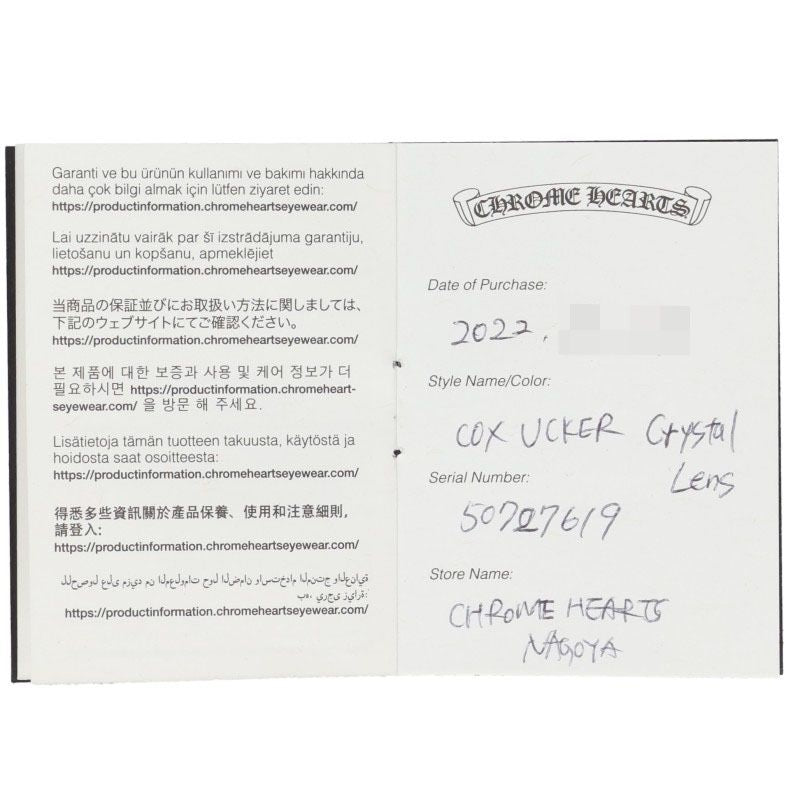 Garanti ve bu ürünün kullanımı ve bakımı hakkında
daha çok bilgi almak için lütfen ziyaret edin:
https://productinformation.chromeheartseyewear.com/
Lai uzzinātu vairāk par šī izstrādājuma garantiju,
lietošanu un kopšanu, apmeklējiet
https://productinformation.chromeheartseyewear.com/
当商品の保証並びにお取扱い方法に関しましては、
下記のウェブサイトにてご確認ください。
https://productinformation.chromeheartseyewear.com/
본 제품에 대한 보증과 사용 및 케어 정보가 더
필요하시면 https://productinformation.chromeheart-
seyewear.com/ 을 방문 해 주세요.
Lisätietoja tämän tuotteen takuusta, käytöstä ja
hoidosta saat osoitteesta:
https://productinformation.chromeheartseyewear.com/
得悉多些資訊關於產品保養、使用和注意細則,
請登入:
https://productinformation.chromeheartseyewear.com/
للحصول على مزيد من المعلومات حول الضمان واستخدام المنتج والعناية
به، يرجى زيارة:
https://productinformation.chromeheartseyewear.com/
CHROME HEARTS
Date of Purchase:
2022.
Style Name/Color:
COX UCKER Crystal
Lens
Serial Number:
50727619
Store Name:
CHROME HEARTS
NAGOYA